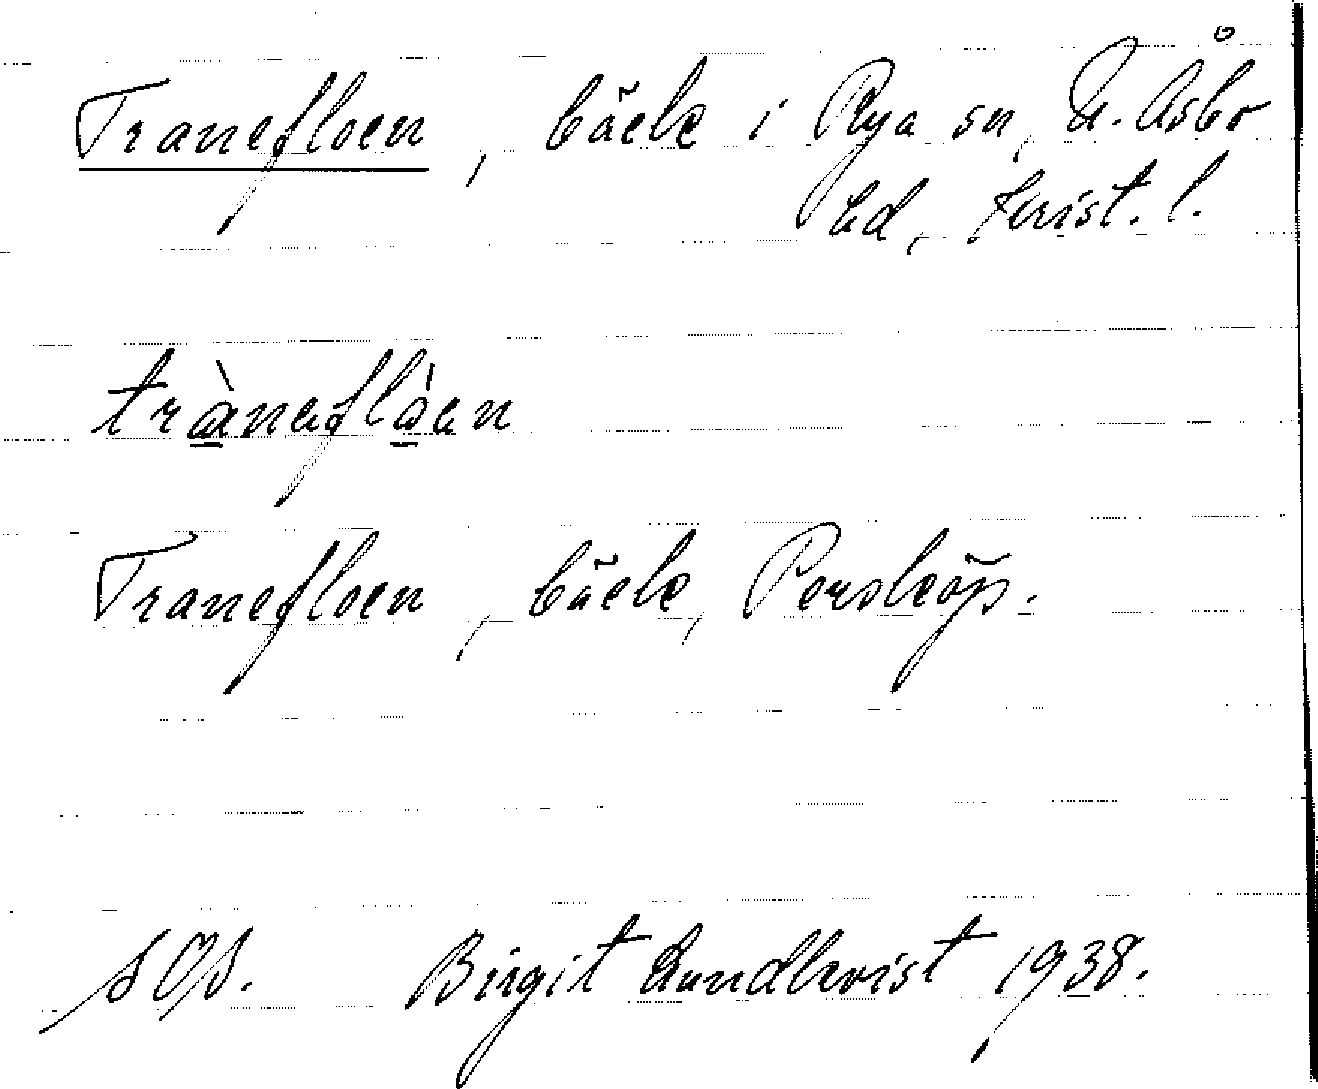 Tranefloen, bäck i Rya sn, N. Åsbo
hd, Krist. l.
tràneflòen
Tranefloen, bäck, Persköp.
SOS. Birgit Lundkvist 1938.